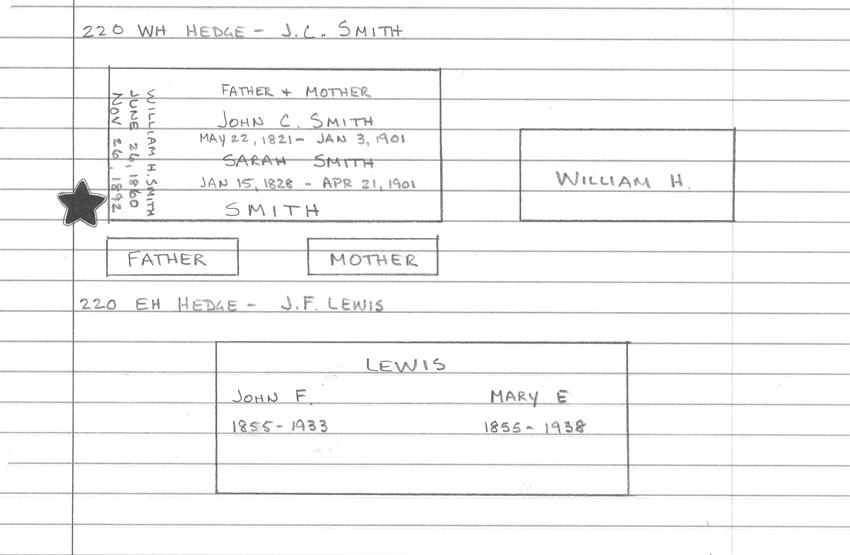 220 WH HEDGE - J.C. SMITH
FATHER + MOTHER
JOHN C. SMITH
MAY 22, 1821 - JAN 3, 1901
SARAH SMITH
JAN 15, 1828 - APR 21, 1901
SMITH
WILLIAM H. SMITH
JUNE 26, 1860
NOV 26, 1892
WILLIAM H.
FATHER
MOTHER
220 EH HEDGE - J.F. LEWIS
LEWIS
JOHN F.
1855 - 1933
MARY E
1855 - 1938